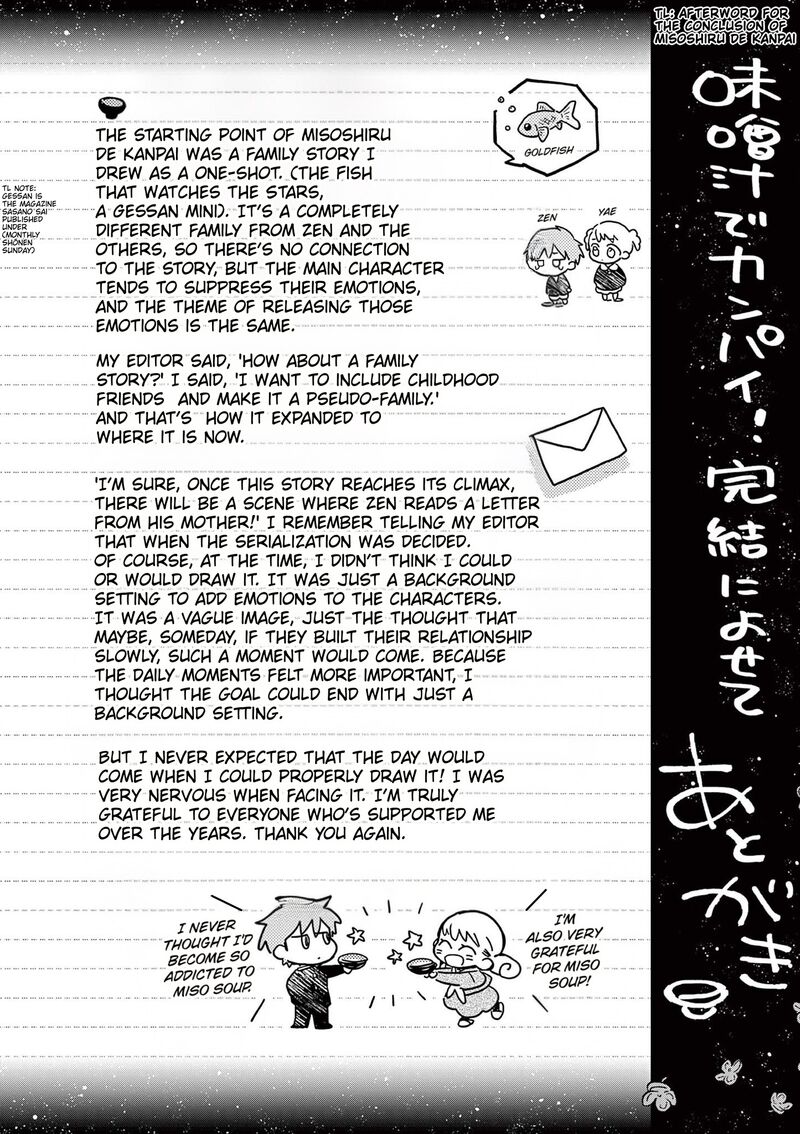 TL: AFTERWORD FOR
THE CONCLUSION OF
MISOSHIRU DE KANPAI
味噌汁でカンパイ!完結によせて
あとがき
THE STARTING POINT OF MISOSHIRU
DE KANPAI WAS A FAMILY STORY I
DREW AS A ONE-SHOT. (THE FISH
THAT WATCHES THE STARS,
A GESSAN MINI). IT'S A COMPLETELY
DIFFERENT FAMILY FROM ZEN AND THE
OTHERS, SO THERE'S NO CONNECTION
TO THE STORY, BUT THE MAIN CHARACTER
TENDS TO SUPPRESS THEIR EMOTIONS,
AND THE THEME OF RELEASING THOSE
EMOTIONS IS THE SAME.
GOLDFISH
ZEN
YAE
TL NOTE:
GESSAN IS
THE MAGAZINE
SASANO SAI
PUBLISHED
UNDER
(MONTHLY
SHŌNEN
SUNDAY)
MY EDITOR SAID, 'HOW ABOUT A FAMILY
STORY?' I SAID, 'I WANT TO INCLUDE CHILDHOOD
FRIENDS AND MAKE IT A PSEUDO-FAMILY.'
AND THAT'S HOW IT EXPANDED TO
WHERE IT IS NOW.
'I'M SURE, ONCE THIS STORY REACHES ITS CLIMAX,
THERE WILL BE A SCENE WHERE ZEN READS A LETTER
FROM HIS MOTHER!' I REMEMBER TELLING MY EDITOR
THAT WHEN THE SERIALIZATION WAS DECIDED.
OF COURSE, AT THE TIME, I DIDN'T THINK I COULD
OR WOULD DRAW IT. IT WAS JUST A BACKGROUND
SETTING TO ADD EMOTIONS TO THE CHARACTERS.
IT WAS A VAGUE IMAGE, JUST THE THOUGHT THAT
MAYBE, SOMEDAY, IF THEY BUILT THEIR RELATIONSHIP
SLOWLY, SUCH A MOMENT WOULD COME. BECAUSE
THE DAILY MOMENTS FELT MORE IMPORTANT, I
THOUGHT THE GOAL COULD END WITH JUST A
BACKGROUND SETTING.
BUT I NEVER EXPECTED THAT THE DAY WOULD
COME WHEN I COULD PROPERLY DRAW IT! I WAS
VERY NERVOUS WHEN FACING IT. I'M TRULY
GRATEFUL TO EVERYONE WHO'S SUPPORTED ME
OVER THE YEARS. THANK YOU AGAIN.
I NEVER
THOUGHT I'D
BECOME SO
ADDICTED TO
MISO SOUP.
I'M
ALSO VERY
GRATEFUL
FOR MISO
SOUP!